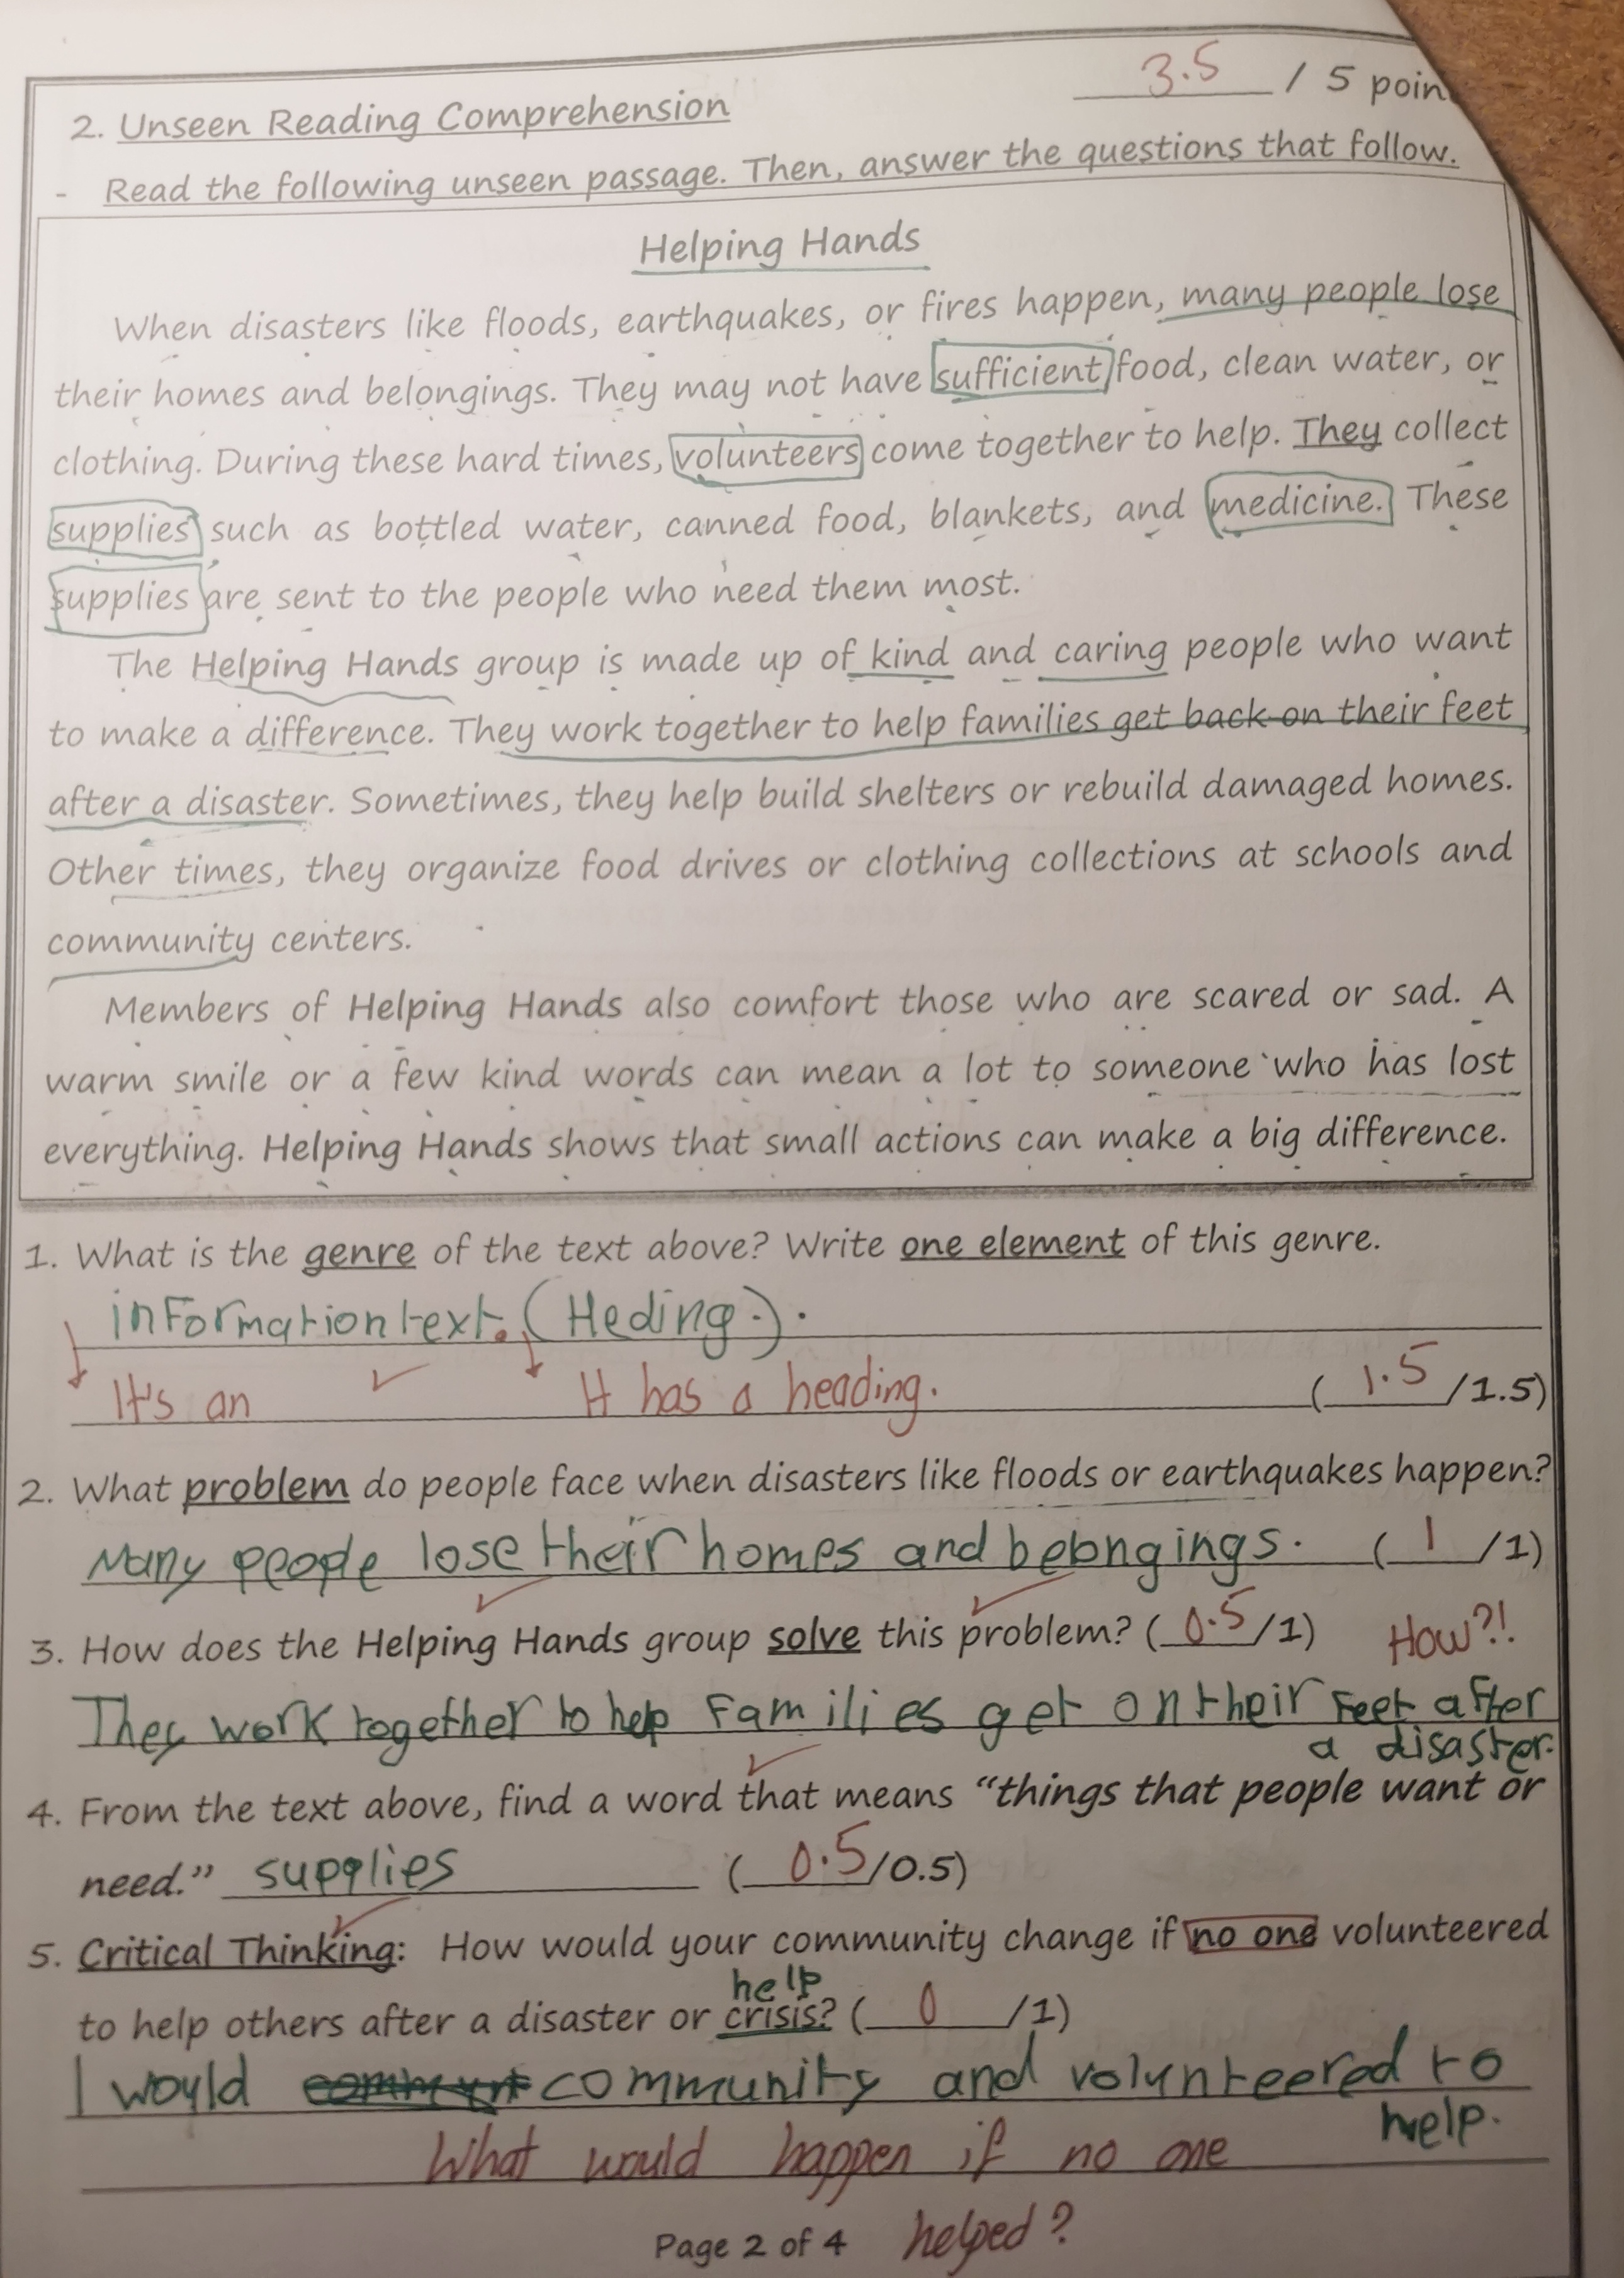 3.5 / 5 poin
2. Unseen Reading Comprehension
- Read the following unseen passage. Then, answer the questions that follow.
Helping Hands
When disasters like floods, earthquakes, or fires happen, many people lose
their homes and belongings. They may not have sufficient food, clean water, or
clothing. During these hard times, volunteers come together to help. They collect
supplies such as bottled water, canned food, blankets, and medicine. These
supplies are sent to the people who need them most.
The Helping Hands group is made up of kind and caring people who want
to make a difference. They work together to help families get back on their feet
after a disaster. Sometimes, they help build shelters or rebuild damaged homes.
Other times, they organize food drives or clothing collections at schools and
community centers.
Members of Helping Hands also comfort those who are scared or sad. A
warm smile or a few kind words can mean a lot to someone who has lost
everything. Helping Hands shows that small actions can make a big difference.
1. What is the genre of the text above? Write one element of this genre.
information text. (Heding.).
It's an It has a heading. ( 1.5 /1.5)
2. What problem do people face when disasters like floods or earthquakes happen?
Many people lose their homes and belongings. ( 1 /1)
3. How does the Helping Hands group solve this problem? ( 0.5 /1) How?!
They work together to help families get on their feet after
a disaster.
4. From the text above, find a word that means "things that people want or
need." supplies ( 0.5 /0.5)
5. Critical Thinking: How would your community change if no one volunteered
help
to help others after a disaster or crisis? ( 0 /1)
I would community and volunteered to
help.
What would happen if no one
helped?
Page 2 of 4